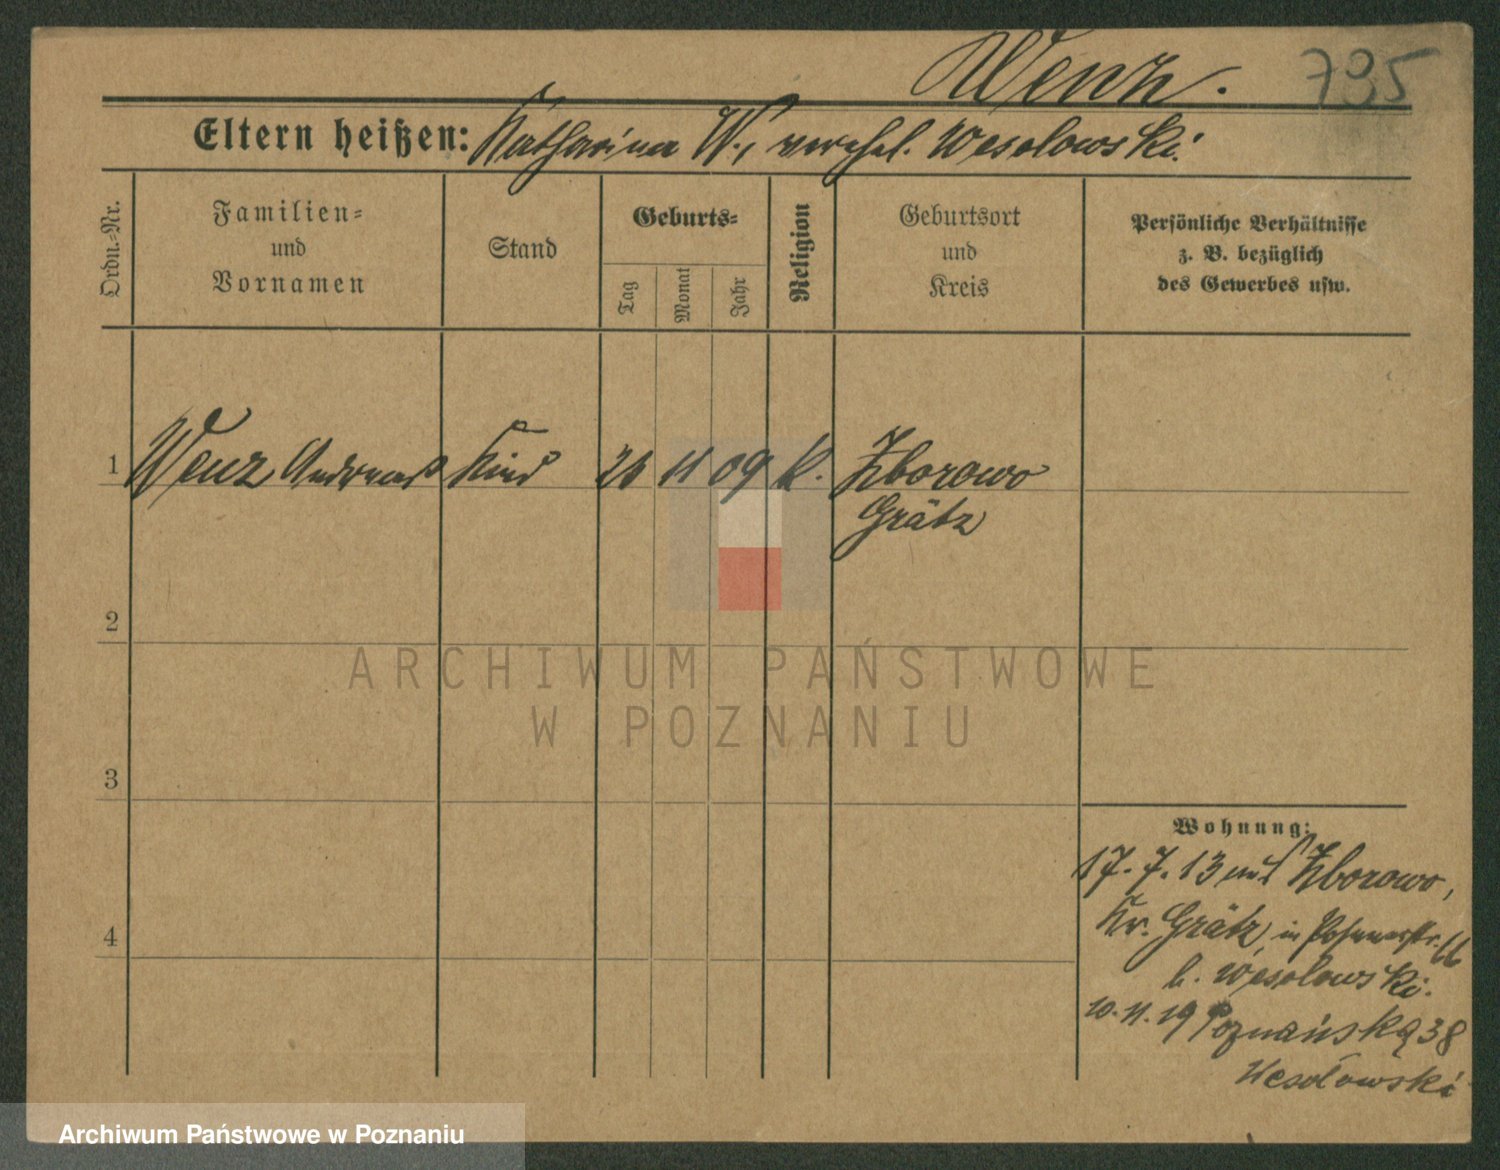 Wenz.
795
Eltern heißen: Katharina W., verehel. Wesolowski.
Ordn.-Nr.
Familien-
und
Vornamen
Stand
Geburts-
Tag
Monat
Jahr
Religion
Geburtsort
und
Kreis
Persönliche Verhältnisse
z. B. bezüglich
des Gewerbes usw.
1 Wenz Andreas Kind 26 11 09 k. Zborowo
Grätz
2
ARCHIWUM PAŃSTWOWE
W POZNANIU
3
Wohnung:
17.7.13 aus Zborowo,
Kr. Grätz, in Posenerstr. 66
b. Wesolowski.
4
10.11.19 Poznańska 38
Wesołowski
Archiwum Państwowe w Poznaniu